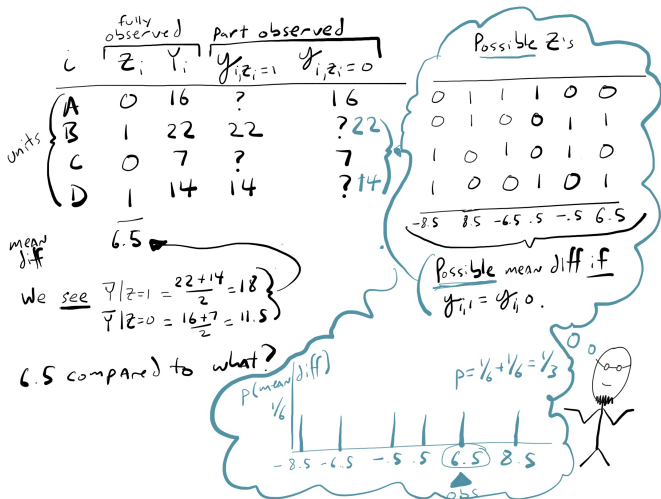 fully observed
part observed
i Z_i Y_i y_{i,Z_i=1} y_{i,Z_i=0}
units
A 0 16 ? 16
B 1 22 22 ? 22
C 0 7 ? 7
D 1 14 14 ? 14
mean diff 6.5
We see Y̅|Z=1 = (22+14)/2 = 18
Y̅|Z=0 = (16+7)/2 = 11.5
6.5 compared to what?
Possible Z's
0 1 1 1 0 0
0 1 0 0 1 1
1 0 1 0 1 0
1 0 0 1 0 1
-8.5 8.5 -6.5 .5 -.5 6.5
Possible mean diff if
y_{i,1} = y_{i,0}.
p(mean diff)
1/6
p=1/6+1/6=1/3
-8.5 -6.5 -.5 .5 6.5 8.5
obs